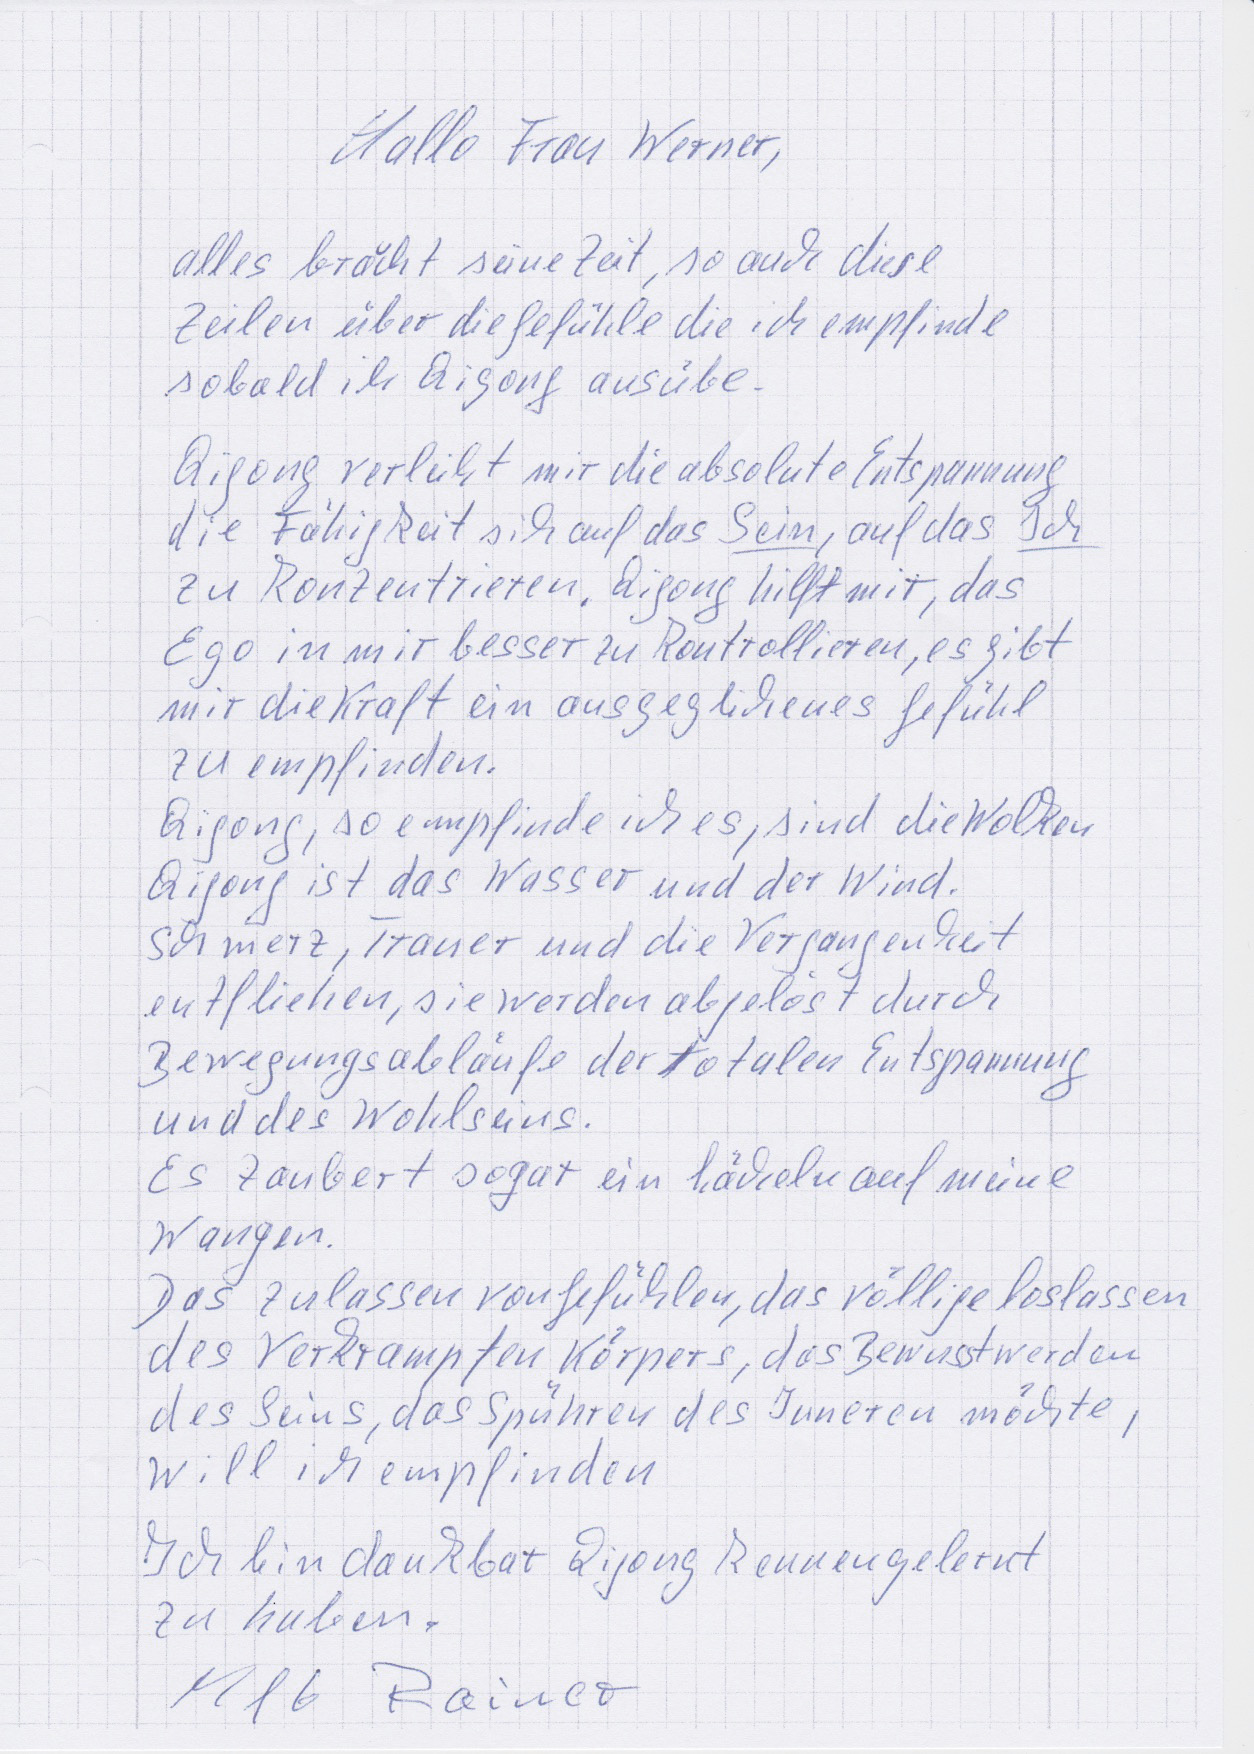 Hallo Frau Werner,
alles bracht seine Zeit, so auch diese
Zeilen über die Gefühle die ich empfinde
sobald ich Qigong ausübe.
Qigong verleiht mir die absolute Entspannung
die Fähigkeit sich auf das Sein, auf das Ich
zu konzentrieren. Qigong hilft mir, das
Ego in mir besser zu kontrollieren, es gibt
mir die Kraft ein ausgeglichenes Gefühl
zu empfinden.
Qigong, so empfinde ich es, sind die Wolken
Qigong ist das Wasser und der Wind.
Schmerz, Trauer und die Vergangenheit
entfliehen, sie werden abgelöst durch
Bewegungsabläufe der totalen Entspannung
und des Wohlseins.
Es zaubert sogar ein Lächeln auf meine
Wangen.
Das zulassen von Gefühlen, das völlige loslassen
des Verkrampften Körpers, das Bewusstwerden
des Seins, das Spühren des Inneren möchte,
will ich empfinden
Ich bin dankbar Qigong kennengelernt
zu haben.
Rainer